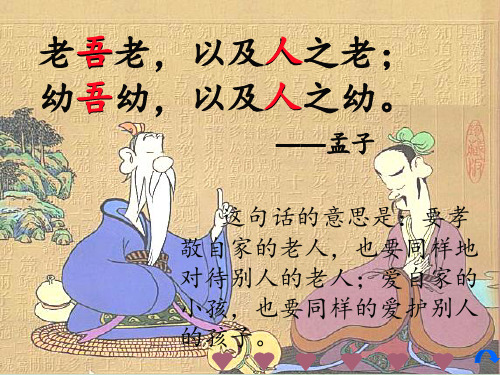 老吾老，以及人之老；
幼吾幼，以及人之幼。
——孟子
这句话的意思是：要孝
敬自家的老人，也要同样地
对待别人的老人；爱自家的
小孩，也要同样的爱护别人
的孩子。